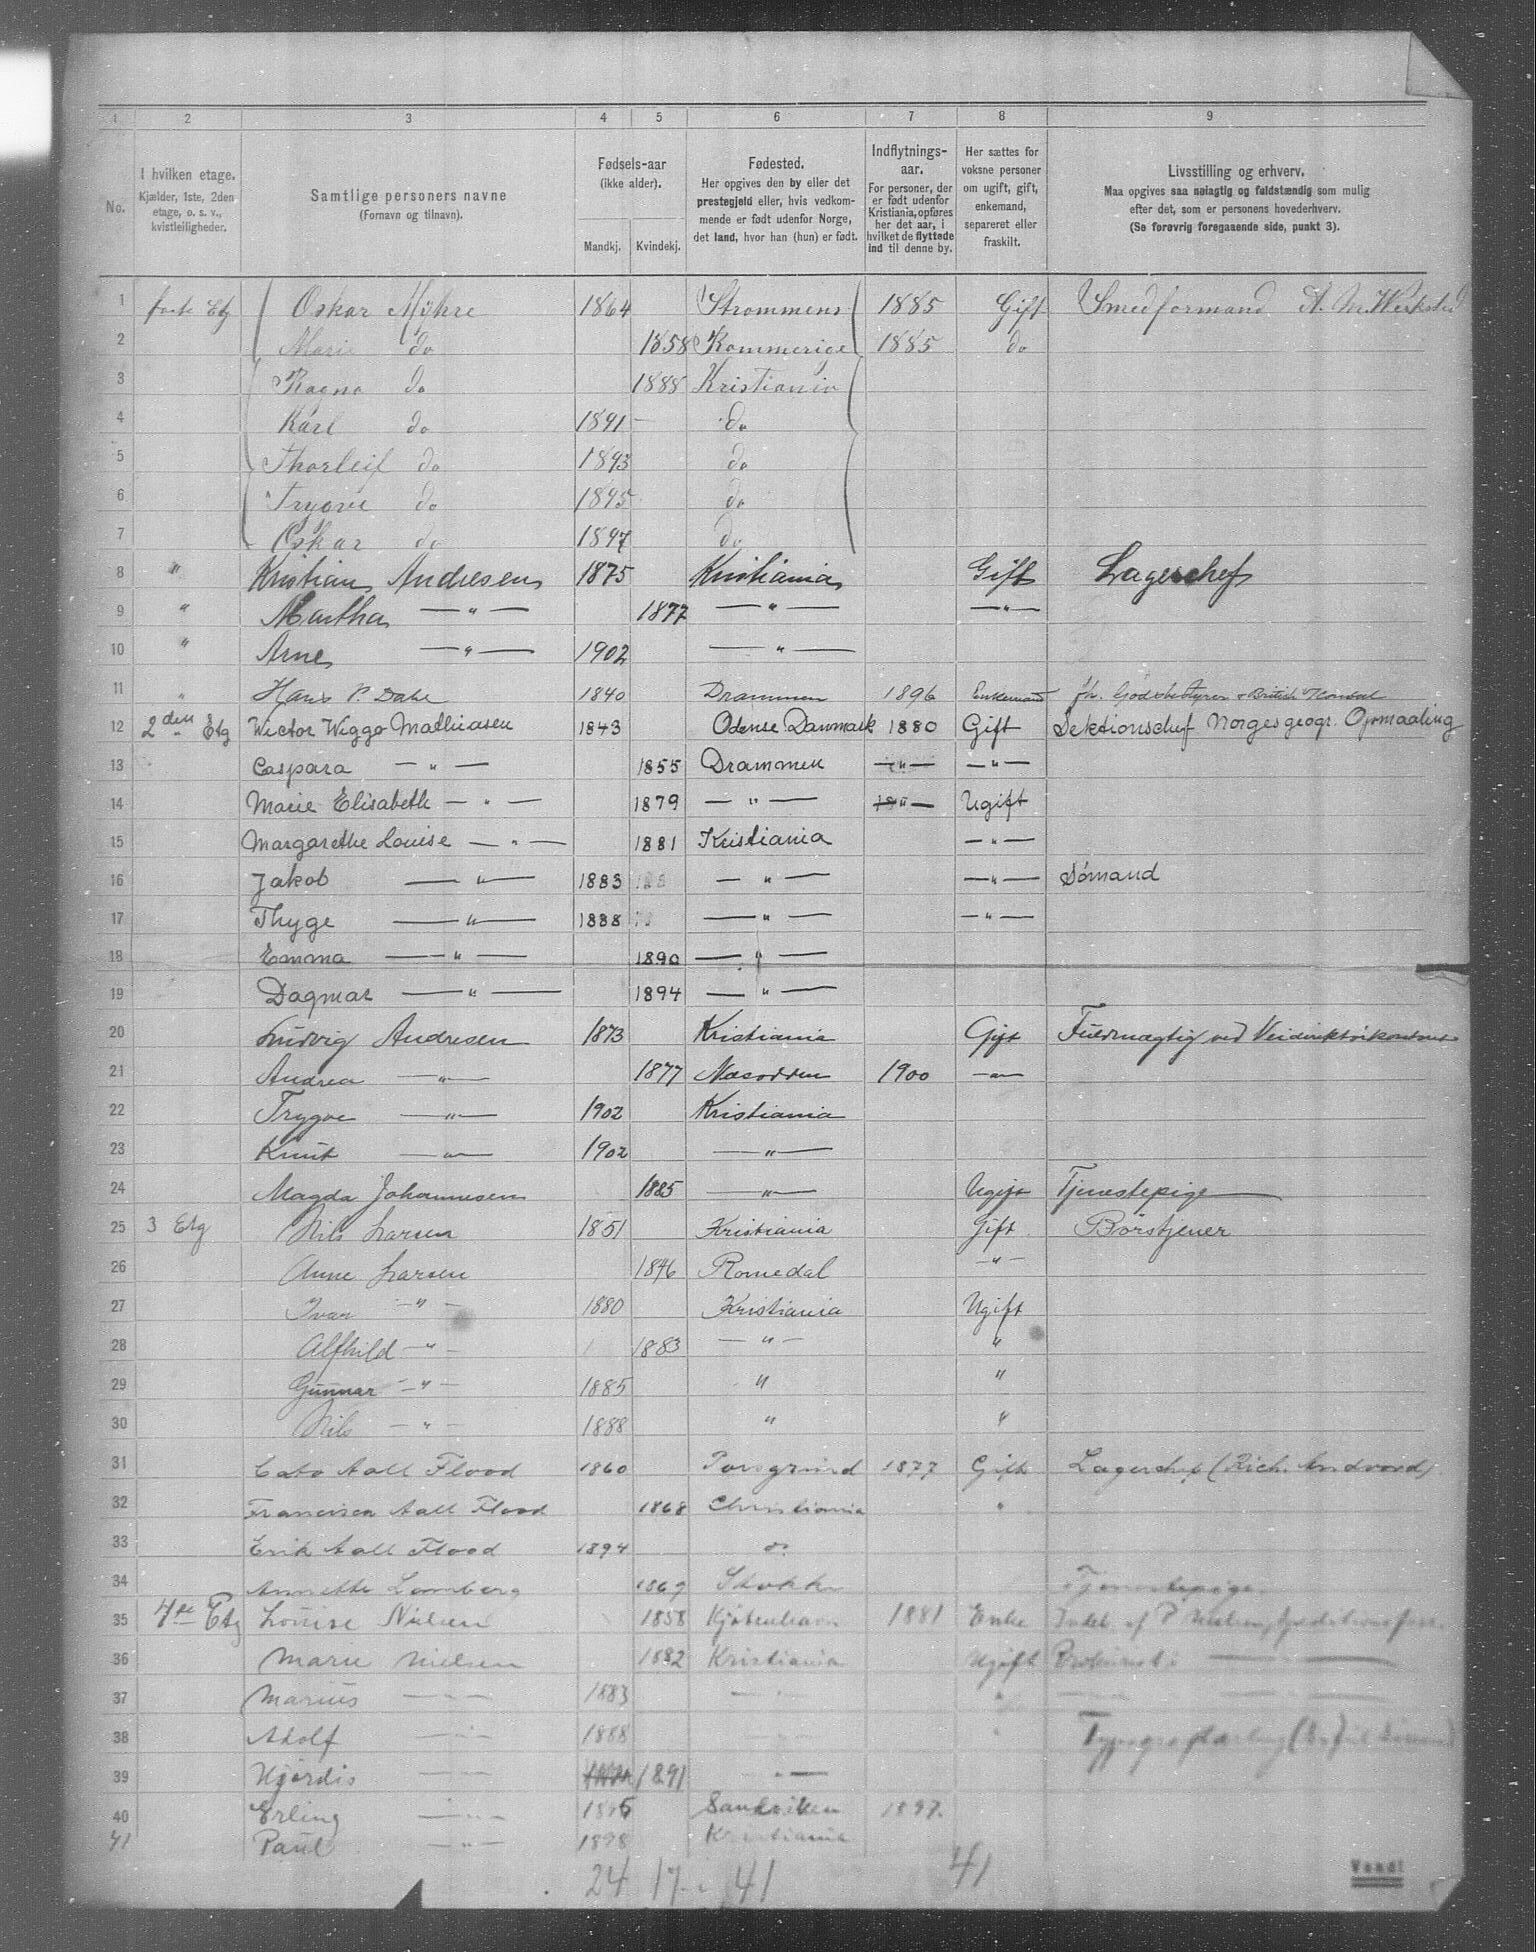 1 2 3 4 5 6 7 8 9
No.
I hvilken etage.
Kjælder, 1ste, 2den
etage, o. s. v.,
kvistleiligheder.
Samtlige personers navne
(Fornavn og tilnavn).
Fødsels-aar
(ikke alder).
Mandkj. Kvindekj.
Fødested.
Her opgives den by eller det
prestegjeld eller, hvis vedkom-
mende er født udenfor Norge,
det land, hvor han (hun) er født.
Indflytnings-
aar.
For personer, der
er født udenfor
Kristiania, opføres
her det aar, i
hvilket de flyttede
ind til denne by.
Her sættes for
voksne personer
om ugift, gift,
enkemand,
separeret eller
fraskilt.
Livsstilling og erhverv.
Maa opgives saa nøiagtig og fuldstændig som mulig
efter det, som er personens hovederhverv.
(Se forøvrig foregaaende side, punkt 3).
1 Etg Oskar Myhre 1864 Strommens 1885 Gift Smedformand A. M. Werksted
2 Marie do 1858 Rommerige 1885 do
3 Ragna do 1888 Kristiania
4 Karl do 1891 do
5 Thorleif do 1893 do
6 Trygve do 1895 do
7 Oskar do 1897 do
8 " Kristian Andresen 1875 Kristiania Gift Lagerchef
9 " Martha — " — 1877 — " — — " —
10 " Arne — " — 1902 — " —
11 " Hans P. Dahl 1840 Drammen 1896 Enkemand fh. Godsbestyrer & British V Konsul
12 2den Etg Wictor Wiggo Mathiasen 1843 Odense Danmark 1880 Gift Sektionschef Norges geogr. Opmaaling
13 Caspara — " — 1855 Drammen — " — — " —
14 Marie Elisabeth — " — 1879 — " — — " — Ugift
15 Margarethe Louise — " — 1881 Kristiania — " —
16 Jakob — " — 1883 — " — — " — Sómand
17 Thyge — " — 1888 — " — — " —
18 Emma — " — 1890 — " —
19 Dagmar — " — 1894 — " —
20 Ludvig Andresen 1873 Kristiania Gift Fuldmægtig ved Veidirektörkontoret
21 Andrea — " — 1877 Næsodden 1900 — " —
22 Trygve — " — 1902 Kristiania
23 Knut — " — 1902 — " —
24 Magda Johannesen 1885 — " — Ugift Tjenestepige
25 3 Etg Nils Larsen 1851 Kristiania Gift Börstjener
26 Anne Larsen 1846 Romedal — "
27 Ivar — " — 1880 Kristiania Ugift
28 Alfhild — " — 1883 — " — "
29 Gunnar — " — 1885 " "
30 Nils — " — 1888 " "
31 Cato Aall Flood 1860 Porsgrund 1877 Gift Lagerchef (Rich. Andvord)
32 Francisca Aall Flood 1868 Christiania "
33 Erik Aall Flood 1894 do
34 Annette Lomberg 1869 Stokke Tjenestepige
35 4de Etg Louise Nielsen 1858 Kjöbenhavn 1881 Enke Indeh. af P Nielsen,
36 Marie Nielsen 1882 Kristiania Ugift
37 Marius — " — 1883 — " —
38 Adolf — " — 1888 Typograflærling
39 Hjördis — " — 1891 — " —
40 Erling — " — 1895 Sandviken 1897
41 Paul — " — 1898 Kristiania
24 17 41 41
Vend!